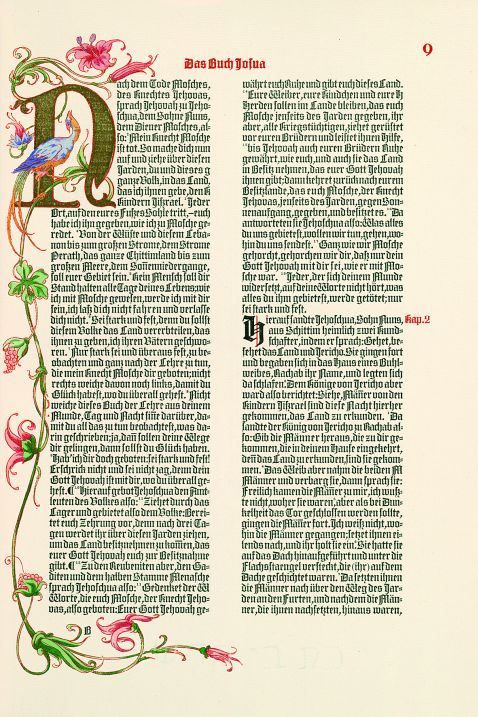 Das Buch Josua
9
Nach dem Tode Mosches,
des Knechtes Jehovas,
sprach Jehovah zu Jeho-
schua, dem Sohne Nuns,
dem Diener Mosches, al-
so: Mein Knecht Mosche
ist tot. So mache dich nun
auf und ziehe über diesen
Jarden, du und dieses g
ganze Volk, in das Land,
das ich ihnen gebe, den K
Kindern Jißrael. Jeder
Ort, auf den eures Fußes Sohle tritt, – euch
habe ich ihn gegeben, wie ich zu Mosche ge-
redet. Von der Wüste und diesem Leba-
non bis zum großen Strome, dem Strome
Perath, das ganze Chittimland bis zum
großen Meere, dem Sonnenniedergange,
soll euer Gebiet sein. Kein Mensch soll dir
Stand halten alle Tage deines Lebens; wie
ich mit Mosche gewesen, werde ich mit dir
sein, ich laß dich nicht fahren und verlasse
dich nicht. Sei stark und fest, denn du sollst
diesem Volke das Land vererbteilen, das
ihnen zu geben, ich ihren Vätern geschwo-
ren. Nur stark sei und überaus fest, zu be-
obachten und ganz nach der Lehre zu tun,
die mein Knecht Mosche dir geboten; nicht
rechts weiche davon noch links, damit du
Glück habest, wo du überall gehest. Nicht
weiche dieses Buch der Lehre aus deinem
Munde, Tag und Nacht sinne darüber, da-
mit du all das zu tun beobachtest, was da-
rin geschrieben; ja, dann sollen deine Wege
dir gelingen, dann sollst du Glück haben.
Hab' ich dir doch geboten: sei stark und fest!
Erschrick nicht und sei nicht zag, denn dein
Gott Jehovah ist mit dir, wo du überall ge-
hest. ¶ Hierauf gebot Jehoschua den Amt-
leuten des Volkes also: Ziehet durch das
Lager und gebietet also dem Volke: Berei-
tet euch Zehrung vor, denn nach drei Ta-
gen werdet ihr über diesen Jarden ziehen,
um das Land besitznehmen zu kommen, das
euer Gott Jehovah euch zur Besitznahme
gibt. ¶ Zu den Reubeniten aber, den Ga-
diten und dem halben Stamme Menasche
sprach Jehoschua also: Gedenket der W
Worte, die euch Mosche, der Knecht Jeho-
vas, also geboten: Euer Gott Jehovah ge-
B
währt euch Ruhe und gibt euch dieses Land.
Eure Weiber, eure Kindchen und eure H
Herden sollen im Lande bleiben, das euch
Mosche jenseits des Jarden gegeben, ihr
aber, alle Kriegstüchtigen, ziehet gerüstet
vor euren Brüdern und leistet ihnen Hilfe,
bis Jehovah auch euren Brüdern Ruhe
gewährt, wie euch, und auch sie das Land
in Besitz nehmen, das euer Gott Jehovah
ihnen gibt; dann kehret zurück nach eurem
Besitzlande, das euch Mosche, der Knecht
Jehovas, jenseits des Jarden, gegen Son-
nenaufgang, gegeben, und besitzet es. Da
antworteten sie Jehoschua also: Was alles
du uns gebietest, wollen wir tun, gehen, wo-
hin du uns sendest. Ganz wie wir Mosche
gehorcht, gehorchen wir dir, daß nur dein
Gott Jehovah mit dir sei, wie er mit Mo-
sche war. Jeder, der sich deinem Munde
widersetzt, auf deine Worte nicht hört, was
alles du ihm gebietest, werde getötet; nur
sei stark und fest.
Hierauf sandte Jehoschua, Sohn Nuns, Kap. 2
aus Schittim heimlich zwei Kund-
schafter, indem er sprach: Gehet, be-
sehet das Land und Jericho. Sie gingen fort
und begaben sich in das Haus eines Buhl-
weibes, Rachab ihr Name, und legten sich
da schlafen. Dem Könige von Jericho aber
ward also berichtet: Siehe, Männer von den
Kindern Jißrael sind diese Nacht hierher
gekommen, das Land zu erkunden. Da
sandte der König von Jericho zu Rachab al-
so: Gib die Männer heraus, die zu dir ge-
kommen, die in deinem Hause eingekehrt,
denn das Land zu erkunden, sind sie gekom-
men. Das Weib aber nahm die beiden M
Männer und verbarg sie, dann sprach sie:
Freilich kamen die Männer zu mir, ich wuß-
te nicht, woher sie waren, aber als bei Dun-
kelheit das Tor geschlossen werden sollte,
gingen die Männer fort. Ich weiß nicht, wo-
hin die Männer gegangen; setzet ihnen ei-
lends nach, und ihr holt sie ein. Sie hatte sie
auf das Dach hinaufgeführt und unter die
Flachsstängel versteckt, die (ihr) auf dem
Dache geschichtet waren. Da setzten ihnen
die Männer nach über den Weg des Jar-
den an den Furten, und nachdem die Män-
ner, die ihnen nachsetzten, hinaus waren,